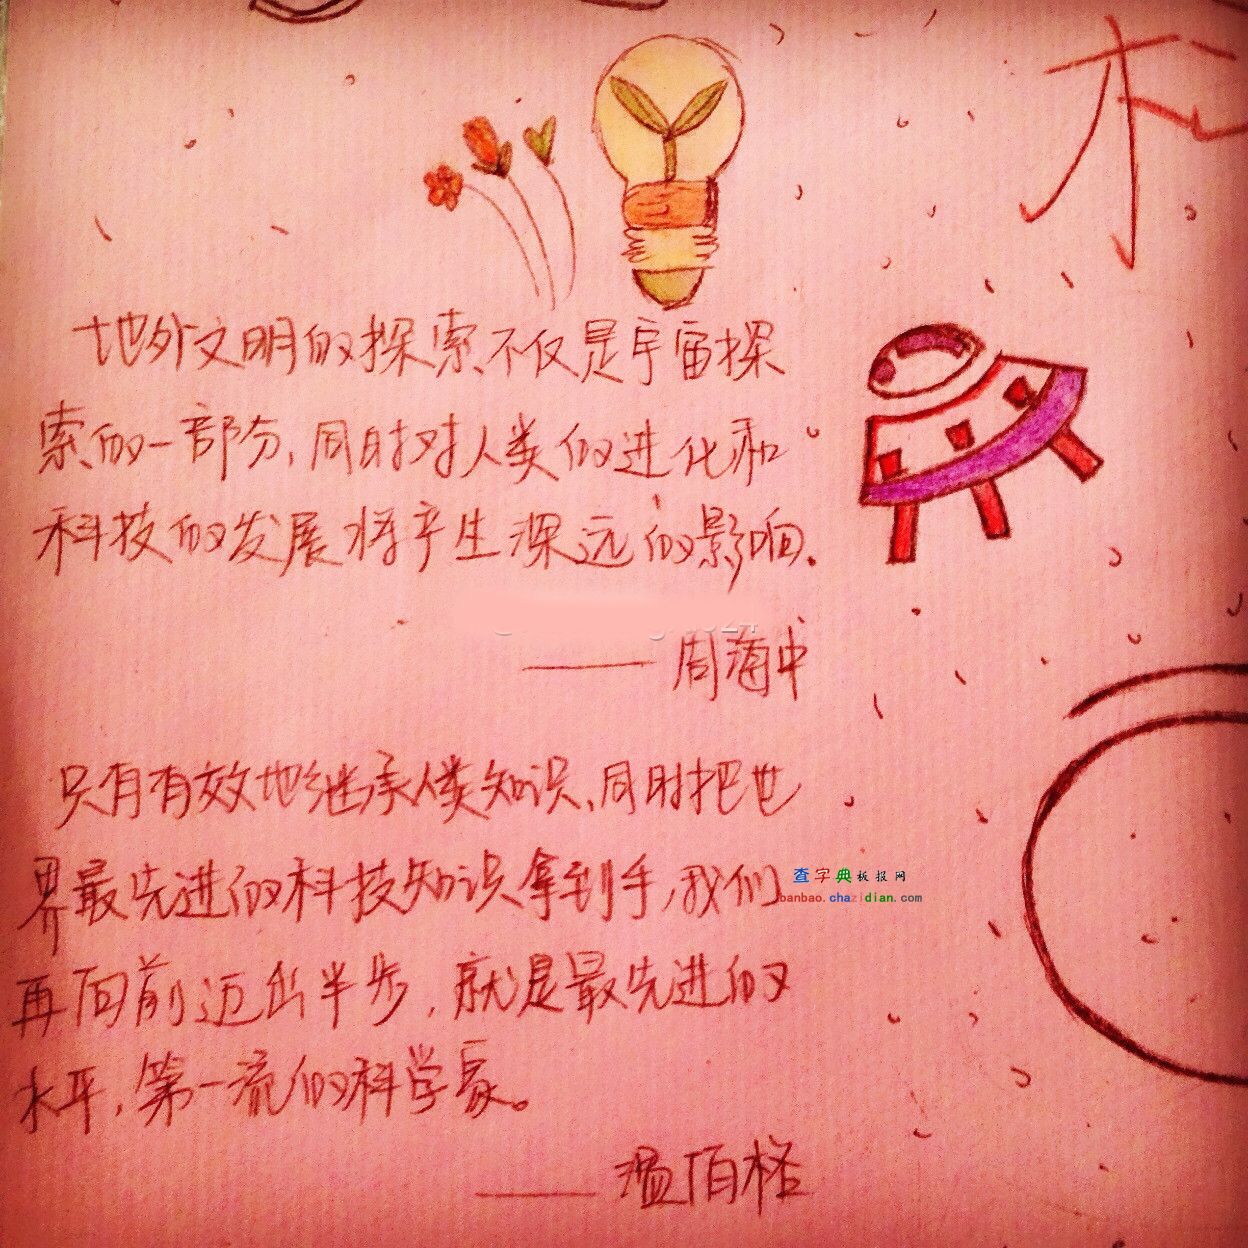 地外文明的探索不仅是宇宙探
索的一部分,同时对人类的进化和
科技的发展将产生深远的影响.
——周海中
只有有效地继承人类知识,同时把世
界最先进的科技知识拿到手,我们
查字典板报网
banbao.chazidian.com
再向前迈出半步,就是最先进的
水平,第一流的科学家。
——温伯格